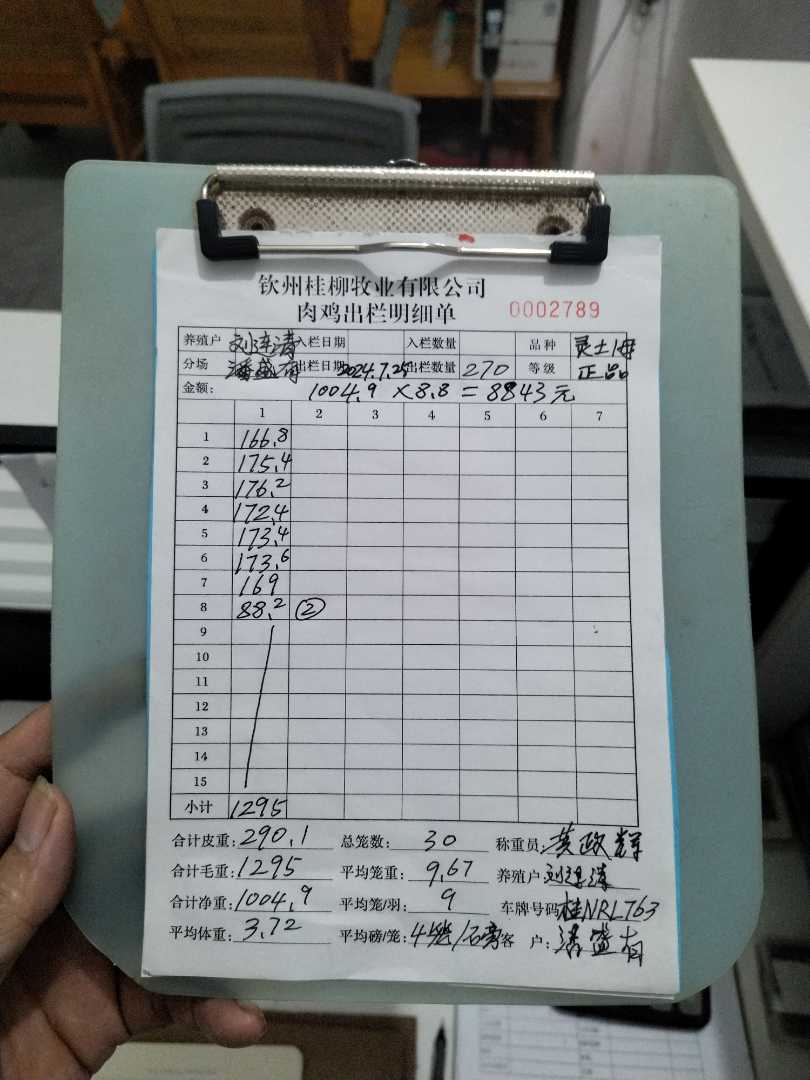 钦州桂柳牧业有限公司
肉鸡出栏明细单 0002789
养殖户 刘连清 入栏日期 入栏数量 品种 灵土1母
分场 潘盛有 出栏日期 2024.7.25 出栏数量 270 等级 正品
金额: 1004.9 × 8.8 = 8843元
1 2 3 4 5 6 7
1 166.8
2 175.4
3 176.2
4 172.4
5 173.4
6 173.6
7 169
8 88.2 ②
9
10
11
12
13
14
15
小计 1295
合计皮重: 290.1 总笼数: 30 称重员: 黄政辉
合计毛重: 1295 平均笼重: 9.67 养殖户:
合计净重: 1004.9 平均笼/羽: 9 车牌号码 桂NRL763
平均体重: 3.72 平均磅/笼: 4 客 户: